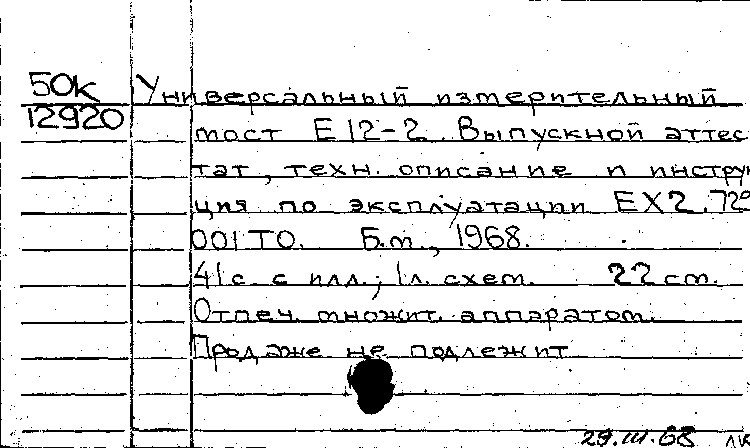 50к Универсальный измерительный
12920 мост Е12-2. Выпускной аттес
тат, техн. описание и инструк
ция по эксплуатации ЕХ2.729
001 ТО. Б.м., 1968.
41 с. с илл.; 1 л. схем. 22 см.
Отпеч. множит. аппаратом.
Продаже не подлежит
29.III.68 ЛК